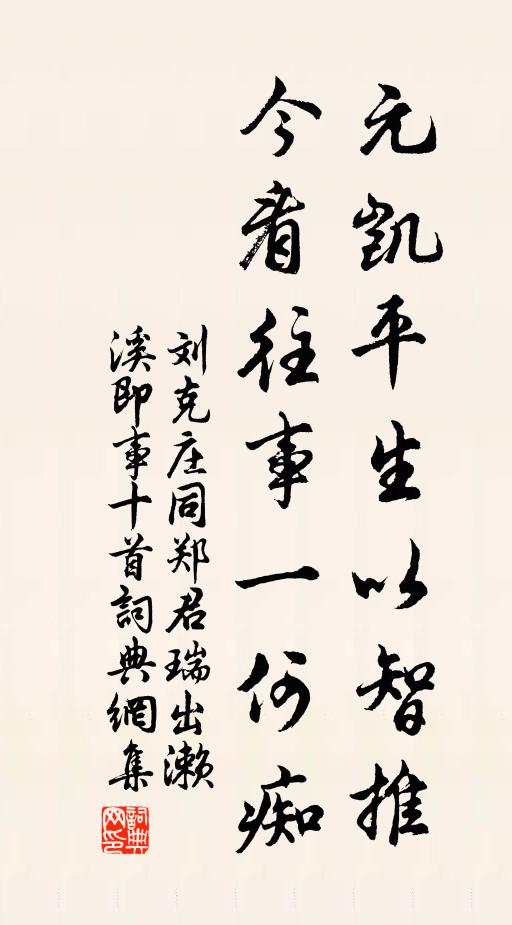 元凯平生以智推
今看往事一何痴
刘克庄同郑君瑞出濑
溪即事十首詞典網集
詞典
网印